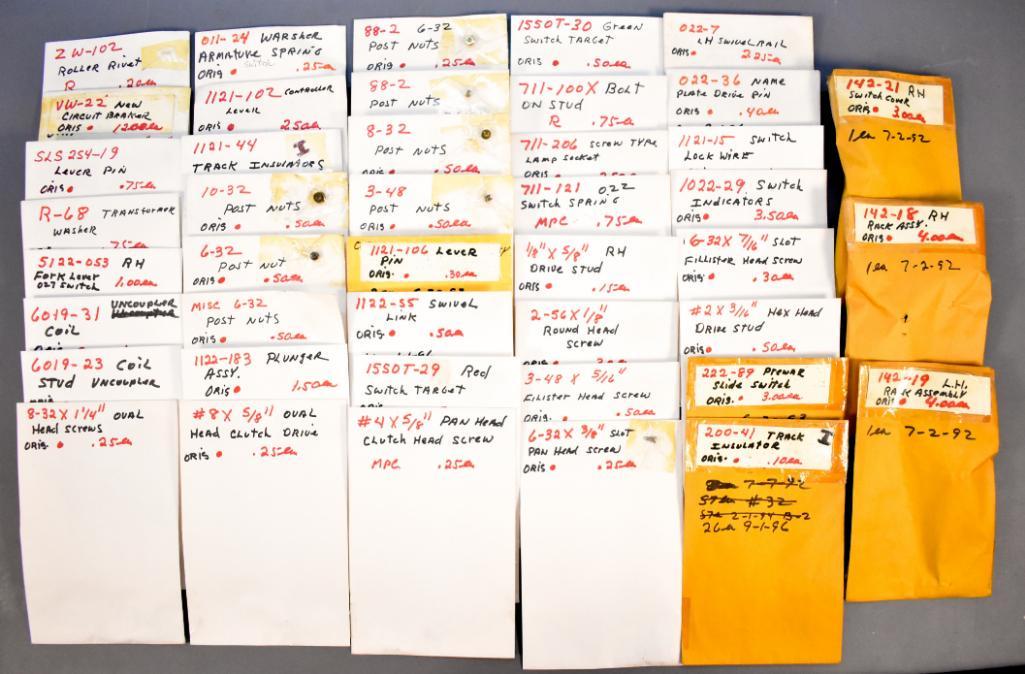 ZW-102
ROLLER Rivet
R .20ea
VW-22 New
CIRCUIT BREAKER
ORIG • 12.00ea
SLS 254-19
LEVER PIN
ORIG • .75ea
R-68 TRANSFORMER
WASHER
.75ea
5122-053 RH
FORK LEVER
027 SWITCH 1.00ea
6019-31 UNCOUPLER
COIL
6019-23 COIL
STUD UNCOUPLER
8-32 X 1 1/4" OVAL
HEAD SCREWS
ORIG • .25ea
011-24 WARSHER
ARMATURE SPRING
Switch
ORIG • .25ea
1121-102 CONTROLLER
LEVER
ORIG • .25ea
1121-44 I
TRACK INSULATORS
10-32
POST NUTS
ORIG • .50ea
6-32
POST NUT
ORIG • .50ea
MISC 6-32
POST NUTS
ORIG • .50ea
1122-183 PLUNGER
ASSY.
ORIG • 1.50ea
#8 X 5/8" OVAL
HEAD CLUTCH DRIVE
ORIG • .25ea
88-2 6-32
POST NUTS
ORIG • .25ea
88-2
POST NUTS
8-32
POST NUTS
ORIG • .50ea
3-48
POST NUTS
ORIG • .50ea
1121-106 LEVER
PIN
ORIG • .30ea
1122-55 SWIVEL
LINK
ORIG • .50ea
1550T-29 Red
SWITCH TARGET
#4 X 5/8" PAN HEAD
CLUTCH HEAD SCREW
MPC .25ea
1550T-30 Green
SWITCH TARGET
ORIG • .50ea
711-100X BOLT
ON STUD
R .75ea
711-206 SCREW TYPE
LAMP SOCKET
ORIG •
711-121 022
SWITCH SPRING
MPC .75ea
1/8" X 5/8" RH
DRIVE STUD
ORIG • .15ea
2-56 X 1/8"
ROUND HEAD
SCREW
3-48 X 5/16"
FILISTER HEAD SCREW
ORIG • .50ea
6-32 X 3/8" SLOT
PAN HEAD SCREW
ORIG • .25ea
022-7
LH SWIVEL RAIL
ORIG • 2.25ea
022-36 NAME
PLATE DRIVE PIN
ORIG • .40ea
1121-15 SWITCH
LOCK WIRE
1022-29 SWITCH
INDICATORS
ORIG • 3.50ea
6-32 X 7/16" SLOT
FILLISTER HEAD SCREW
ORIG • .30ea
#2 X 3/16" HEX HEAD
DRIVE STUD
ORIG • .50ea
222-89 PREWAR
SLIDE SWITCH
ORIG • 3.00ea
200-41 TRACK I
INSULATOR
ORIG • .10ea
7-7-92
57ea #32
57ea 2-1-94 B-2
26ea 9-1-96
142-21 RH
SWITCH COVER
ORIG • 3.00ea
1ea 7-2-92
142-18 RH
RACK ASSY.
ORIG • 4.00ea
1ea 7-2-92
142-19 L.H.
RACK ASSEMBLY
ORIG • 4.00ea
1ea 7-2-92